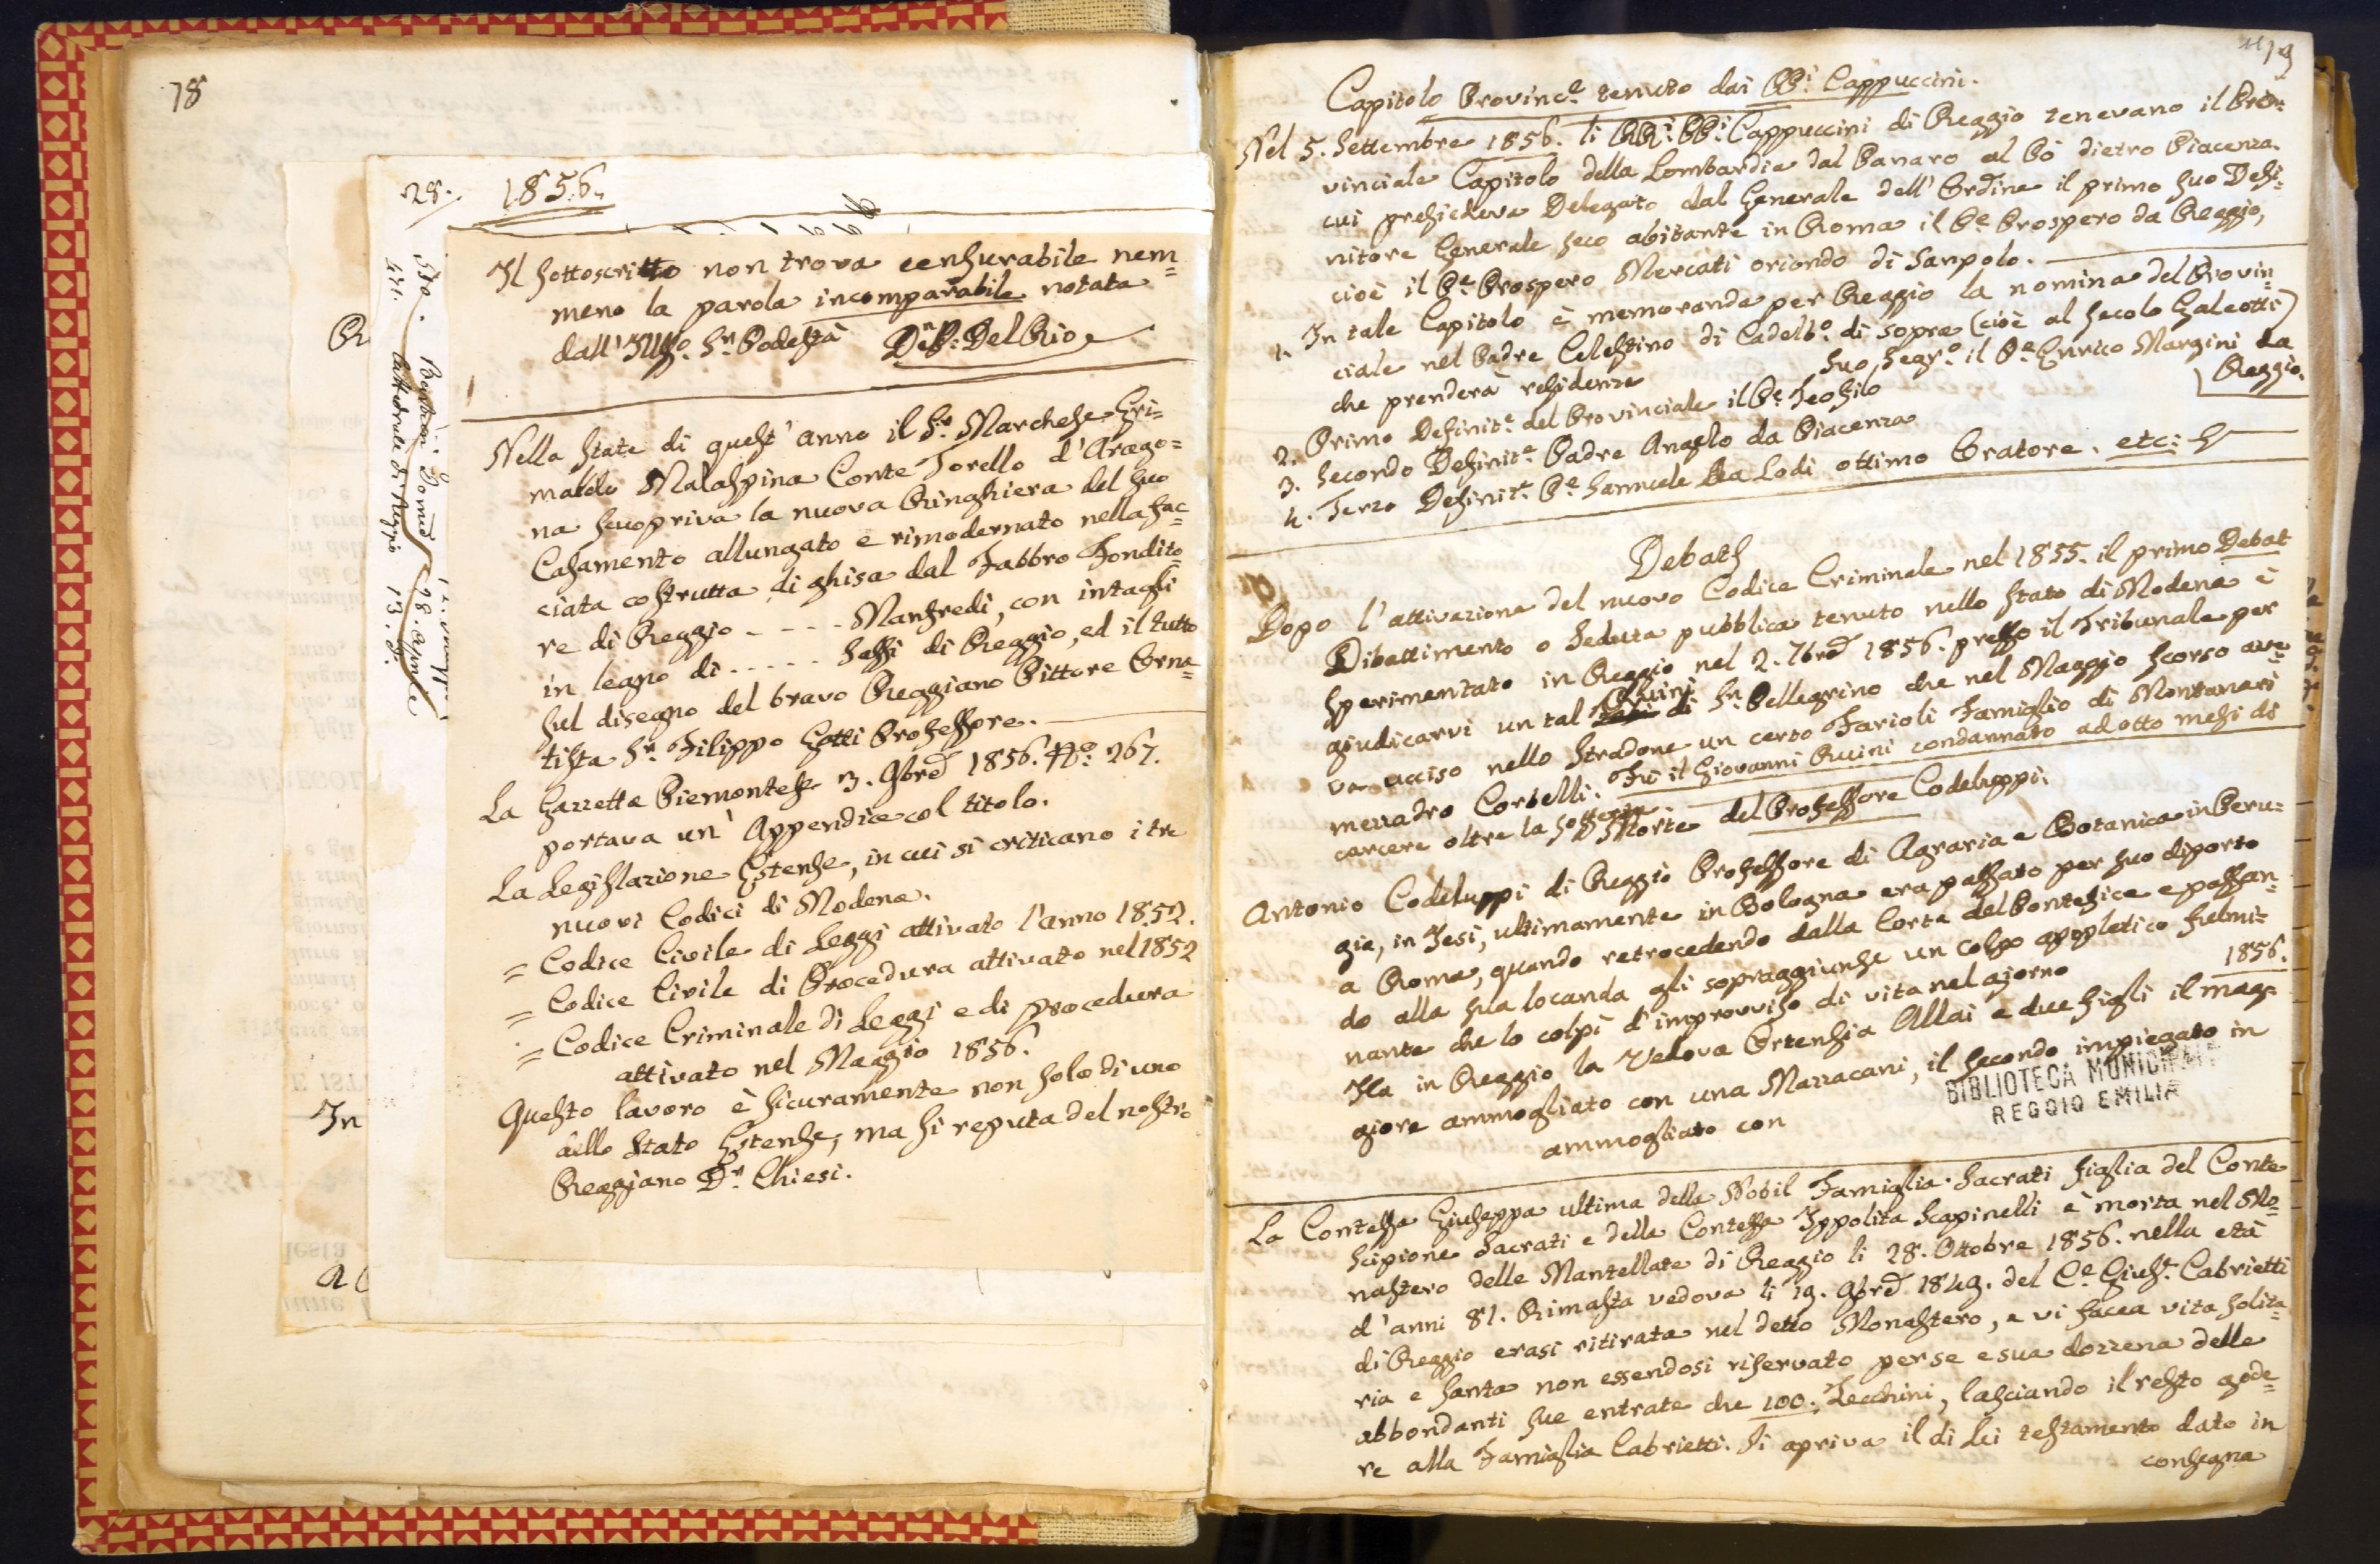 78
28.
1856.
Il sottoscritto non trova censurabile nem=
meno la parola incomparabile notata
dall'Illmo. Sr. Podestà Dn. P: Del Rio
Nella state di quest'anno il Sr. Marchese Gri=
maldo Malaspina Conte Torello d'Arago=
na scuopriva la nuova Ringhiera del suo
Casamento allungato e rimodernato nella fac=
ciata costrutta di ghisa dal Fabbro Fondito=
re di Reggio - - - - Manfredi, con intagli
in legno di - - - - - Saffi di Reggio, ed il tutto
sul disegno del bravo Reggiano Pittore Orna=
tista Sr. Filippo Gatti Professore.
La Gazzetta Piemontese 3. 9bre 1856. No: 267.
portava un' Appendice col titolo.
La Legislazione Estense, in cui si criticano i tre
nuovi Codici di Modena.
= Codice Civile di Leggi attivato l'anno 1852.
= Codice Civile di Procedura attivato nel 1852
= Codice Criminale di Leggi e di procedura
attivato nel Maggio 1856.
Questo lavoro è sicuramente non solo di uno
dello Stato Estense, ma si reputa del nostro
Reggiano Dr. Chiesi.
Cattedrale di Reggio 13.
28. Aprile
In
19
Capitolo Provinc.e tenuto dai PP.i Cappuccini.
Nel 5. Settembre 1856. li RR.i PP.i Cappuccini di Reggio tenevano il Pro=
vinciale Capitolo della Lombardia dal Panaro al Pò dietro Piacenza.
cui presiedeva Delegato dal Generale dell'Ordine il primo suo Defi=
nitore Generale seco abitante in Roma il Pe. Prospero da Reggio,
cioè il Pe. Prospero Mercati oriondo di Sanpolo.
1. In tale Capitolo è memoranda per Reggio la nomina del Provin=
ciale nel Padre Celestino di Cadelbo. di sopra (cioè al secolo Galeotti)
che prenderà residenza suo Segro. il Pe. Enrico Margini da
Reggio.
2. Primo Definite. del Provinciale il Pe. Teofilo
3. Secondo Definite. Padre Angelo da Piacenza
4. Terzo Definite. Pe. Samuele da Lodi ottimo Oratore. etc:
Debats
Dopo l'attivazione del nuovo Codice Criminale nel 1855. il primo Debat
Dibattimento o Seduta pubblica tenuto nello Stato di Modena è
sperimentato in Reggio nel 2. 7bre 1856. presso il Tribunale per
giudicarvi un tal Ruini di Sn. Pellegrino che nel Maggio scorso ave=
va ucciso nello Stradone un certo Farioli Famiglio di Montanari
mezzadro Corbelli. Fù il Giovanni Ruini condannato ad otto mesi di
carcere oltre la sofferta.
Morte del Professore Codeluppi.
Antonio Codeluppi di Reggio Professore di Agraria e Botanica in Peru=
gia, in Jesi, ultimamente in Bologna era passato per suo diporto
a Roma, quando retrocedendo dalla Corte del Pontefice e passan=
do alla sua locanda gli sopraggiunse un colpo apopletico fulmi=
nante che lo colpì d'improvviso di vita nel giorno 1856.
Ha in Reggio la Vedova Ortensia Allai e due figli il mag=
giore ammogliato con una Mazzacani, il secondo impiegato in
ammogliato con
BIBLIOTECA MUNICIPALE
REGGIO EMILIA
La Contessa Giuseppa ultima della Nobil Famiglia Sacrati figlia del Conte
Scipione Sacrati e della Contessa Ippolita Scapinelli è morta nel Mo=
nastero delle Mantellate di Reggio li 28. Ottobre 1856. nella età
d'anni 81. Rimasta vedova li 19. 9bre 1849. del Ce. Giuse. Cabrietti
di Reggio erasi ritirata nel detto Monastero, e vi facea vita solita=
ria e santa non essendosi riservato per se e sua dozzena delle
abbondanti sue entrate che 100. Zecchini, lasciando il resto gode=
re alla Famiglia Cabrietti. Si apriva il di Lei testamento dato in
consegna